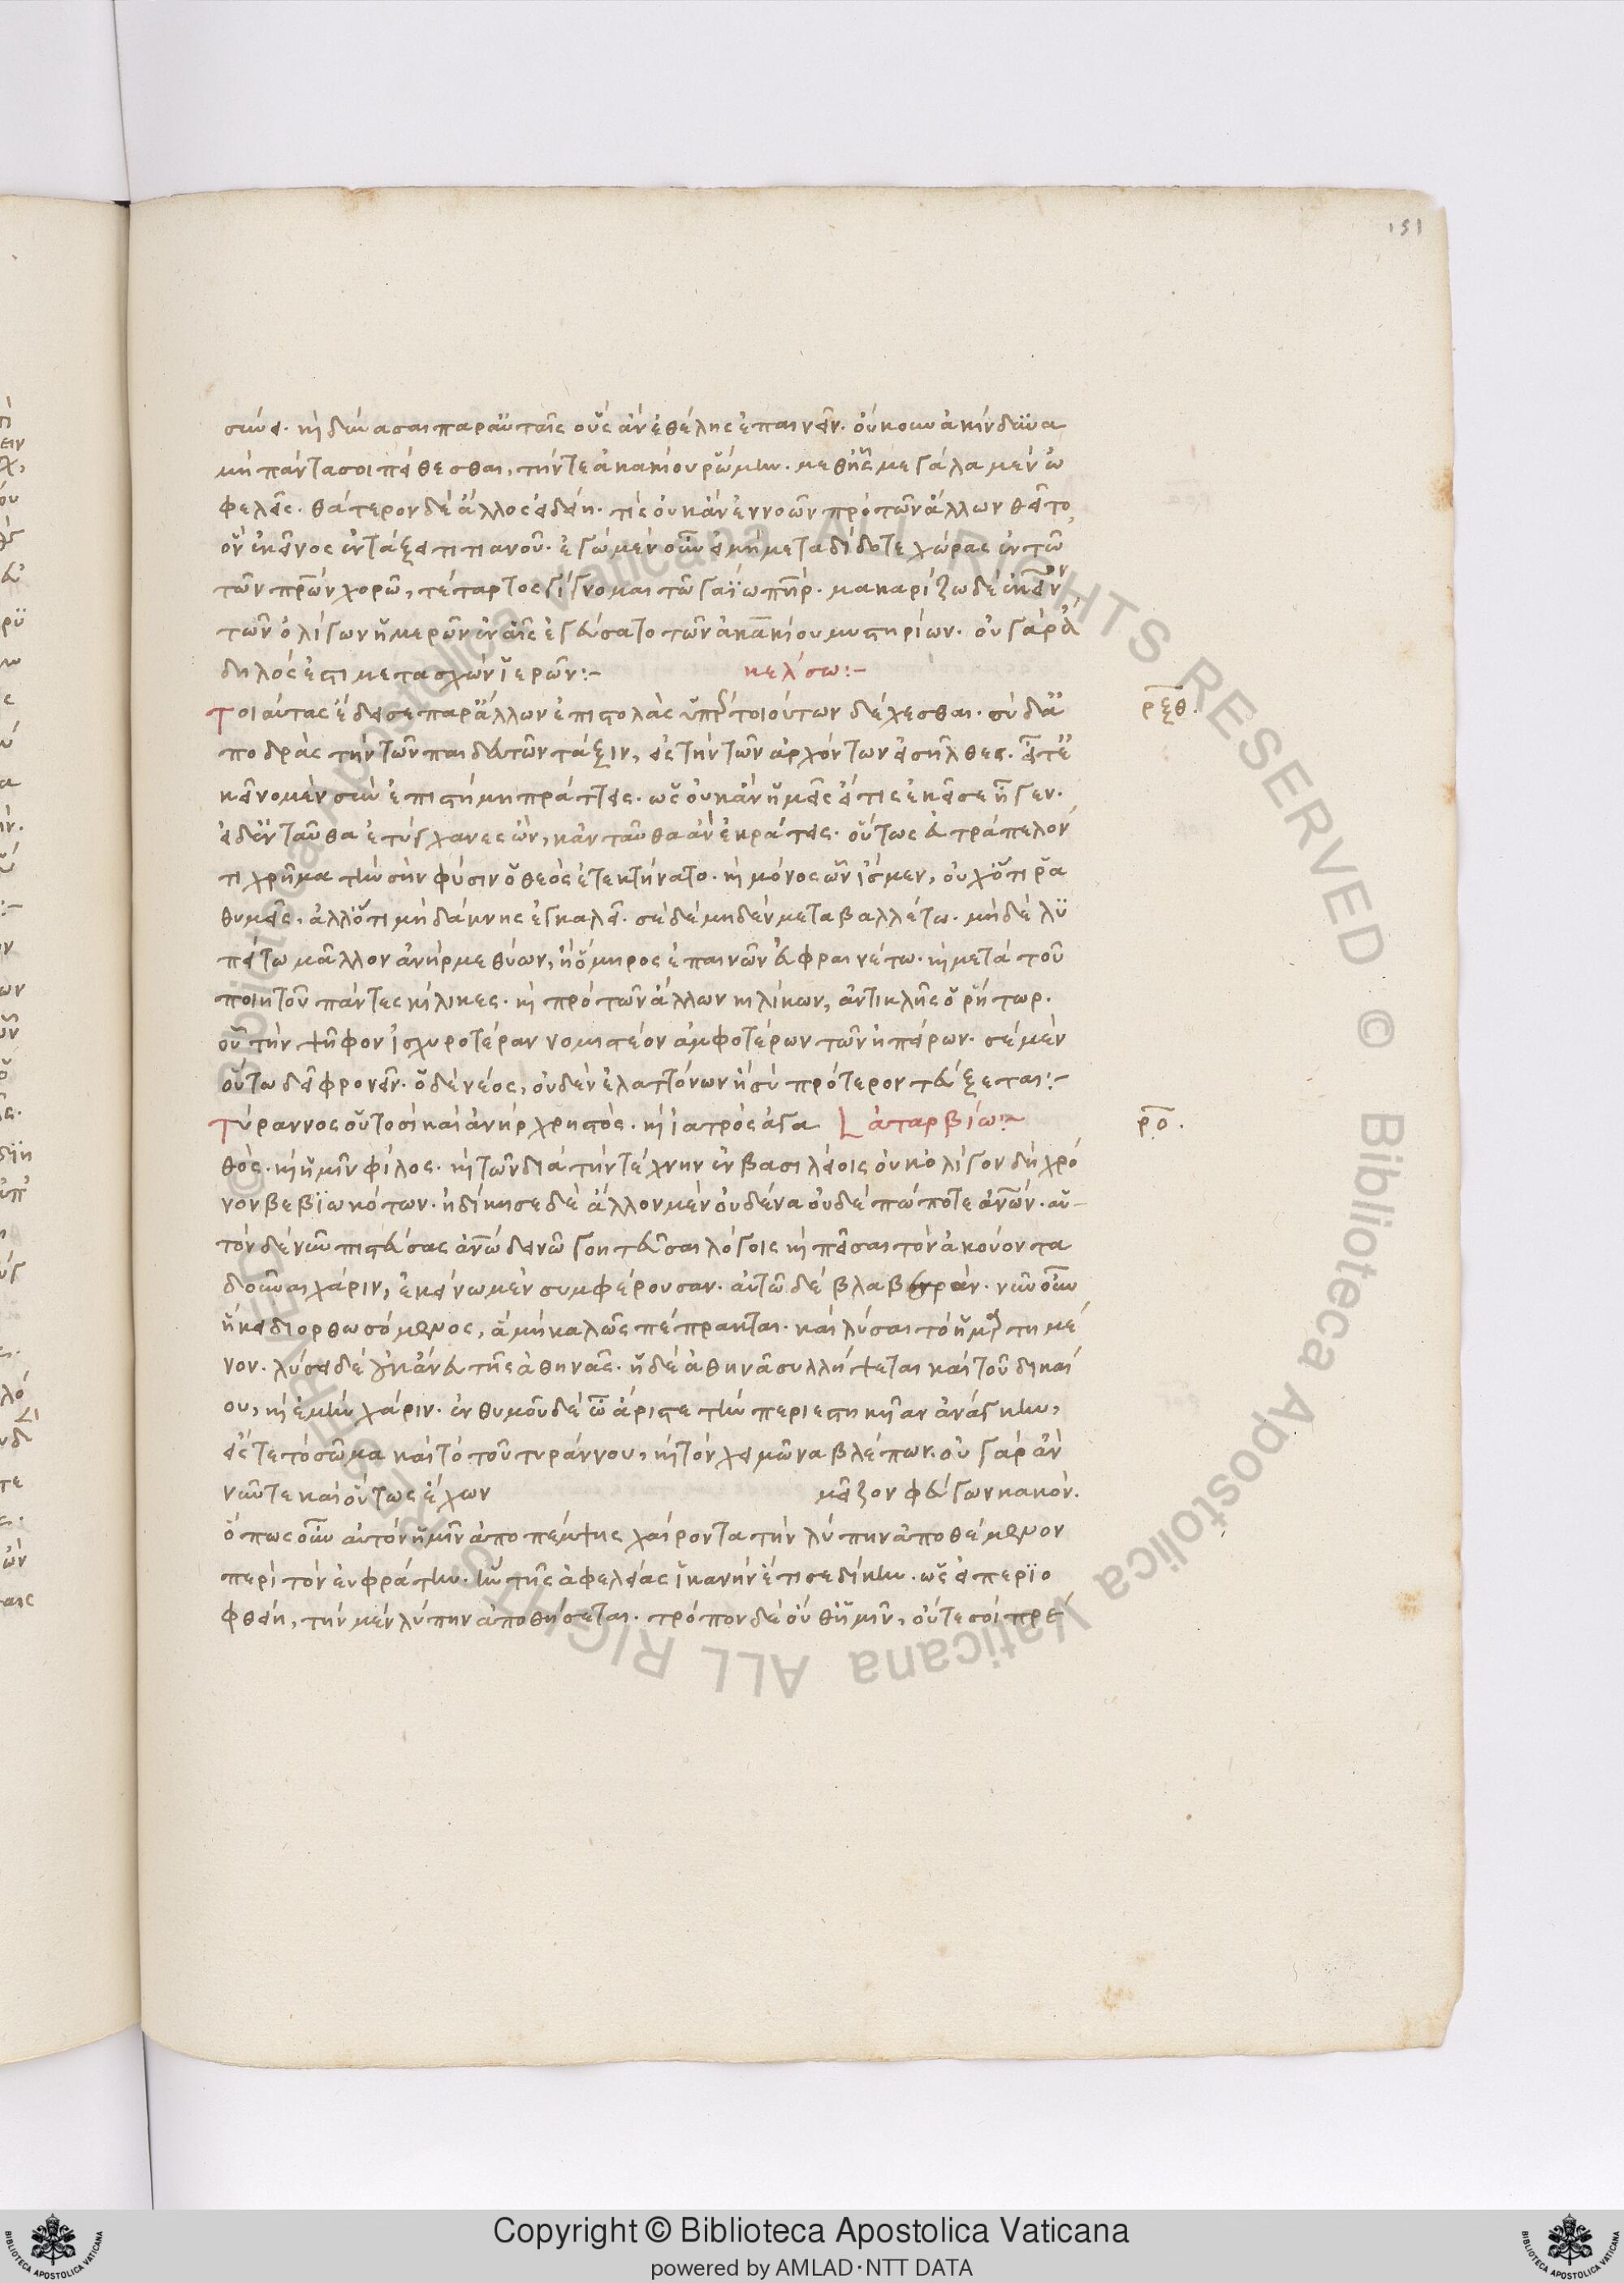 151
σύνει. καὶ δύνασαι παρ' αὐταῖς οὓς ἂν ἐθέλης ἐπαινεῖν. οὔκουν ἀκίνδυνα
μὴ πάντα σοι πείθεσθαι, τήν τε ἀκακίου ῥώμην. μεθ' ἧς μεγάλα μὲν ὠ
φελεῖς. θάτερον δὲ ἄλλος εἰδείη. τίς οὐκ ἂν ἐννοῶν πρὸ τῶν ἄλλων θεῖτο
ὃν ἐκεῖνος ἐντάξει τιτιανοῦ. ἐγὼ μὲν οὖν εἰ μὴ μεταδίδοτε χώρας ἐν τῶ
τῶν πατέρων χορῶ, τέταρτος γίγνομαι τῶ γαΐω πατήρ. μακαρίζω δὲ ἐκεῖνον
τῶν ὀλίγων ἡμερῶν ἐν αἷς ἐγεύσατο τῶν ἀκακίου μυστηρίων. οὐ γὰρ ἄ
δηλός ἐστι μετασχὼν ἱερῶν:-
κελίσω:-
ρξθ.
Τοιαύτας ἔδει σε παρ' ἄλλων ἐπιστολὰς ὑπὲρ τοιούτων δέχεσθαι. σὺ δ' ἀ
ποδρὰς τὴν τῶν παιδευτῶν τάξιν, εἰς τὴν τῶν ἀρχόντων εἰσῆλθες. εἶτ' ἐ
κεῖνο μὲν σὺν ἐπιστήμη πράττεις. ὡς οὐκ ἂν ἡμᾶς εἴ τις ἐκεῖσε ἦγεν.
εἰ δ' ἐνταῦθα ἐτύγχανες ὢν, κἀνταῦθα ἂν ἐκράτεις. οὕτως εὐτράπελόν
τι χρῆμα τὴν σὴν φύσιν ὁ θεὸς ἐτεκτήνατο. καὶ μόνος ὧν ἴσμεν, οὐχ ὅτι ῥα
θυμεῖς, ἀλλ' ὅτι μὴ δάκνης ἐγκαλεῖ. σὲ δὲ μηδὲν μεταβαλλέτω. μηδὲ λυ
πείτω μᾶλλον ἀνὴρ μεθύων, ἢ ὅμηρος ἐπαινῶν εὐφραινέτω. καὶ μετὰ τοῦ
ποιητοῦ πάντες κίλικες. καὶ πρὸ τῶν ἄλλων κιλίκων, ἀντικλῆς ὁ ῥήτωρ.
οὗ τὴν ψῆφον ἰσχυροτέραν νομιστέον ἀμφοτέρων τῶν ἠπείρων. σὲ μὲν
οὕτω δεῖ φρονεῖν. ὁ δὲ νέος, οὐδὲν ἐλαττόνων ἢ σὺ πρότερον τεύξεται:-
ἀταρβίω:-
ρο.
Τύραννος οὑτοσὶ καὶ ἀνὴρ χρηστὸς. καὶ ἰατρὸς ἀγα
θὸς. καὶ ἡμῖν φίλος. καὶ τῶν διὰ τὴν τέχνην ἐν βασιλείοις οὐκ ὀλίγον δὴ χρό
νον βεβιωκότων. ἠδίκησε δὲ ἄλλον μὲν οὐδένα οὐδὲ πώποτε ἀνθρώπων. αὑ-
τὸν δὲ νῦν πιστεύσας ἀνθρώπω δεινῶ γοητεῦσαι λόγοις καὶ πεῖσαι τὸν ἀκούοντα
δοῦναι χάριν, ἐκείνω μὲν συμφέρουσαν. αὐτῶ δὲ βλαβερὰν. νῦν οὖν
ἥκει διορθωσόμενος, ἃ μὴ καλῶς πέπρακται. καὶ λύσαι τὸ ἡμαρτημέ
νον. λύσει δὲ οὐκ ἄνευ τῆς ἀθηνᾶς. ἡ δὲ ἀθηνᾶ συλλήψεται καὶ τοῦ δικαί
ου, καὶ ἐμὴν χάριν. ἐνθυμοῦ δὲ ὦ ἄριστε τὴν περιεστηκυῖαν ἀνάγκην,
εἴς τε τὸ σῶμα καὶ τὸ τοῦ τυράννου, καὶ τὸν χειμῶνα βλέπων. οὐ γὰρ ἂν
νῦν τε καὶ οὕτως ἔχων μεῖζον φεύγων κακόν.
ὅπως οὖν αὐτὸν ἡμῖν ἀποπέμψης χαίροντα τὴν λύπην ἀποθέμενον
περὶ τὸν εὐφράτην. ἣν τῆς ἀφελείας ἱκανὴν ἔτισε δίκην. ὡς εἰ περιο
φθείη, τὴν μὲν λύπην ἀποθήσεται. τρόπον δὲ οὔθ' ἡμῖν, οὔτε σοὶ πρέ
Copyright © Biblioteca Apostolica Vaticana
powered by AMLAD·NTT DATA